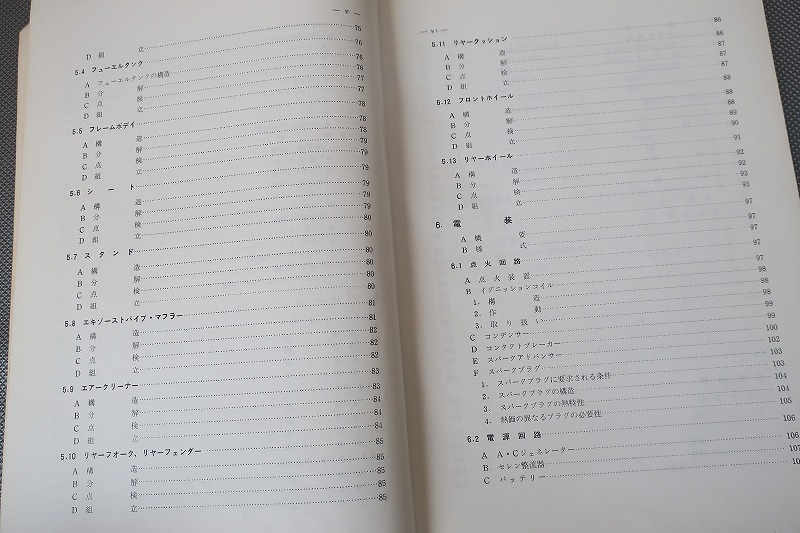 — v —
D 組 立 75
5.4 フューエルタンク 76
A フューエルタンクの構造 76
B 分 解 77
C 点 検 77
D 組 立 78
5.5 フレームボデイ 78
A 構 造 78
B 分 解 79
C 点 検 79
D 組 立 79
5.6 シ ー ト 79
A 構 造 79
B 分 解 79
C 点 検 80
D 組 立 80
5.7 ス タ ン ド 80
A 構 造 80
B 分 解 80
C 点 検 80
D 組 立 81
5.8 エキゾーストパイプ・マフラー 81
A 構 造 82
B 分 解 82
C 点 検 82
D 組 立 83
5.9 エアークリーナー 83
A 構 造 84
B 分 解 84
C 点 検 84
D 組 立 85
5.10 リヤーフオーク、リヤーフェンダー 85
A 構 造 85
B 分 解 85
C 点 検 85
D 組 立 85
— vi —
5.11 リヤークッション 86
A 構 造 86
B 分 解 87
C 点 検 87
D 組 立 88
5.12 フロントホイール 88
A 構 造 88
B 分 解 89
C 点 検 90
D 組 立 91
5.13 リヤーホイール 92
A 構 造 92
B 分 解 93
C 点 検 93
D 組 立
6. 電 装 97
A 概 要 97
B 様 式 97
6.1 点 火 回 路 97
A 点 火 装 置 97
B イグニッションコイル 98
1. 構 造 98
2. 作 動 99
3. 取 り 扱 い 99
C コンデンサー 100
D コンタクトブレーカー 102
E スパークアドバンサー 103
F スパークプラグ 103
1. スパークプラグに要求される条件 104
2. スパークプラグの構造 104
3. スパークプラグの熱特性 105
4. 熱価の異なるプラグの必要性
6.2 電 源 回 路 106
A A・Cジェネレーター 106
B セレン整流器
C バ ッ テ リ ー